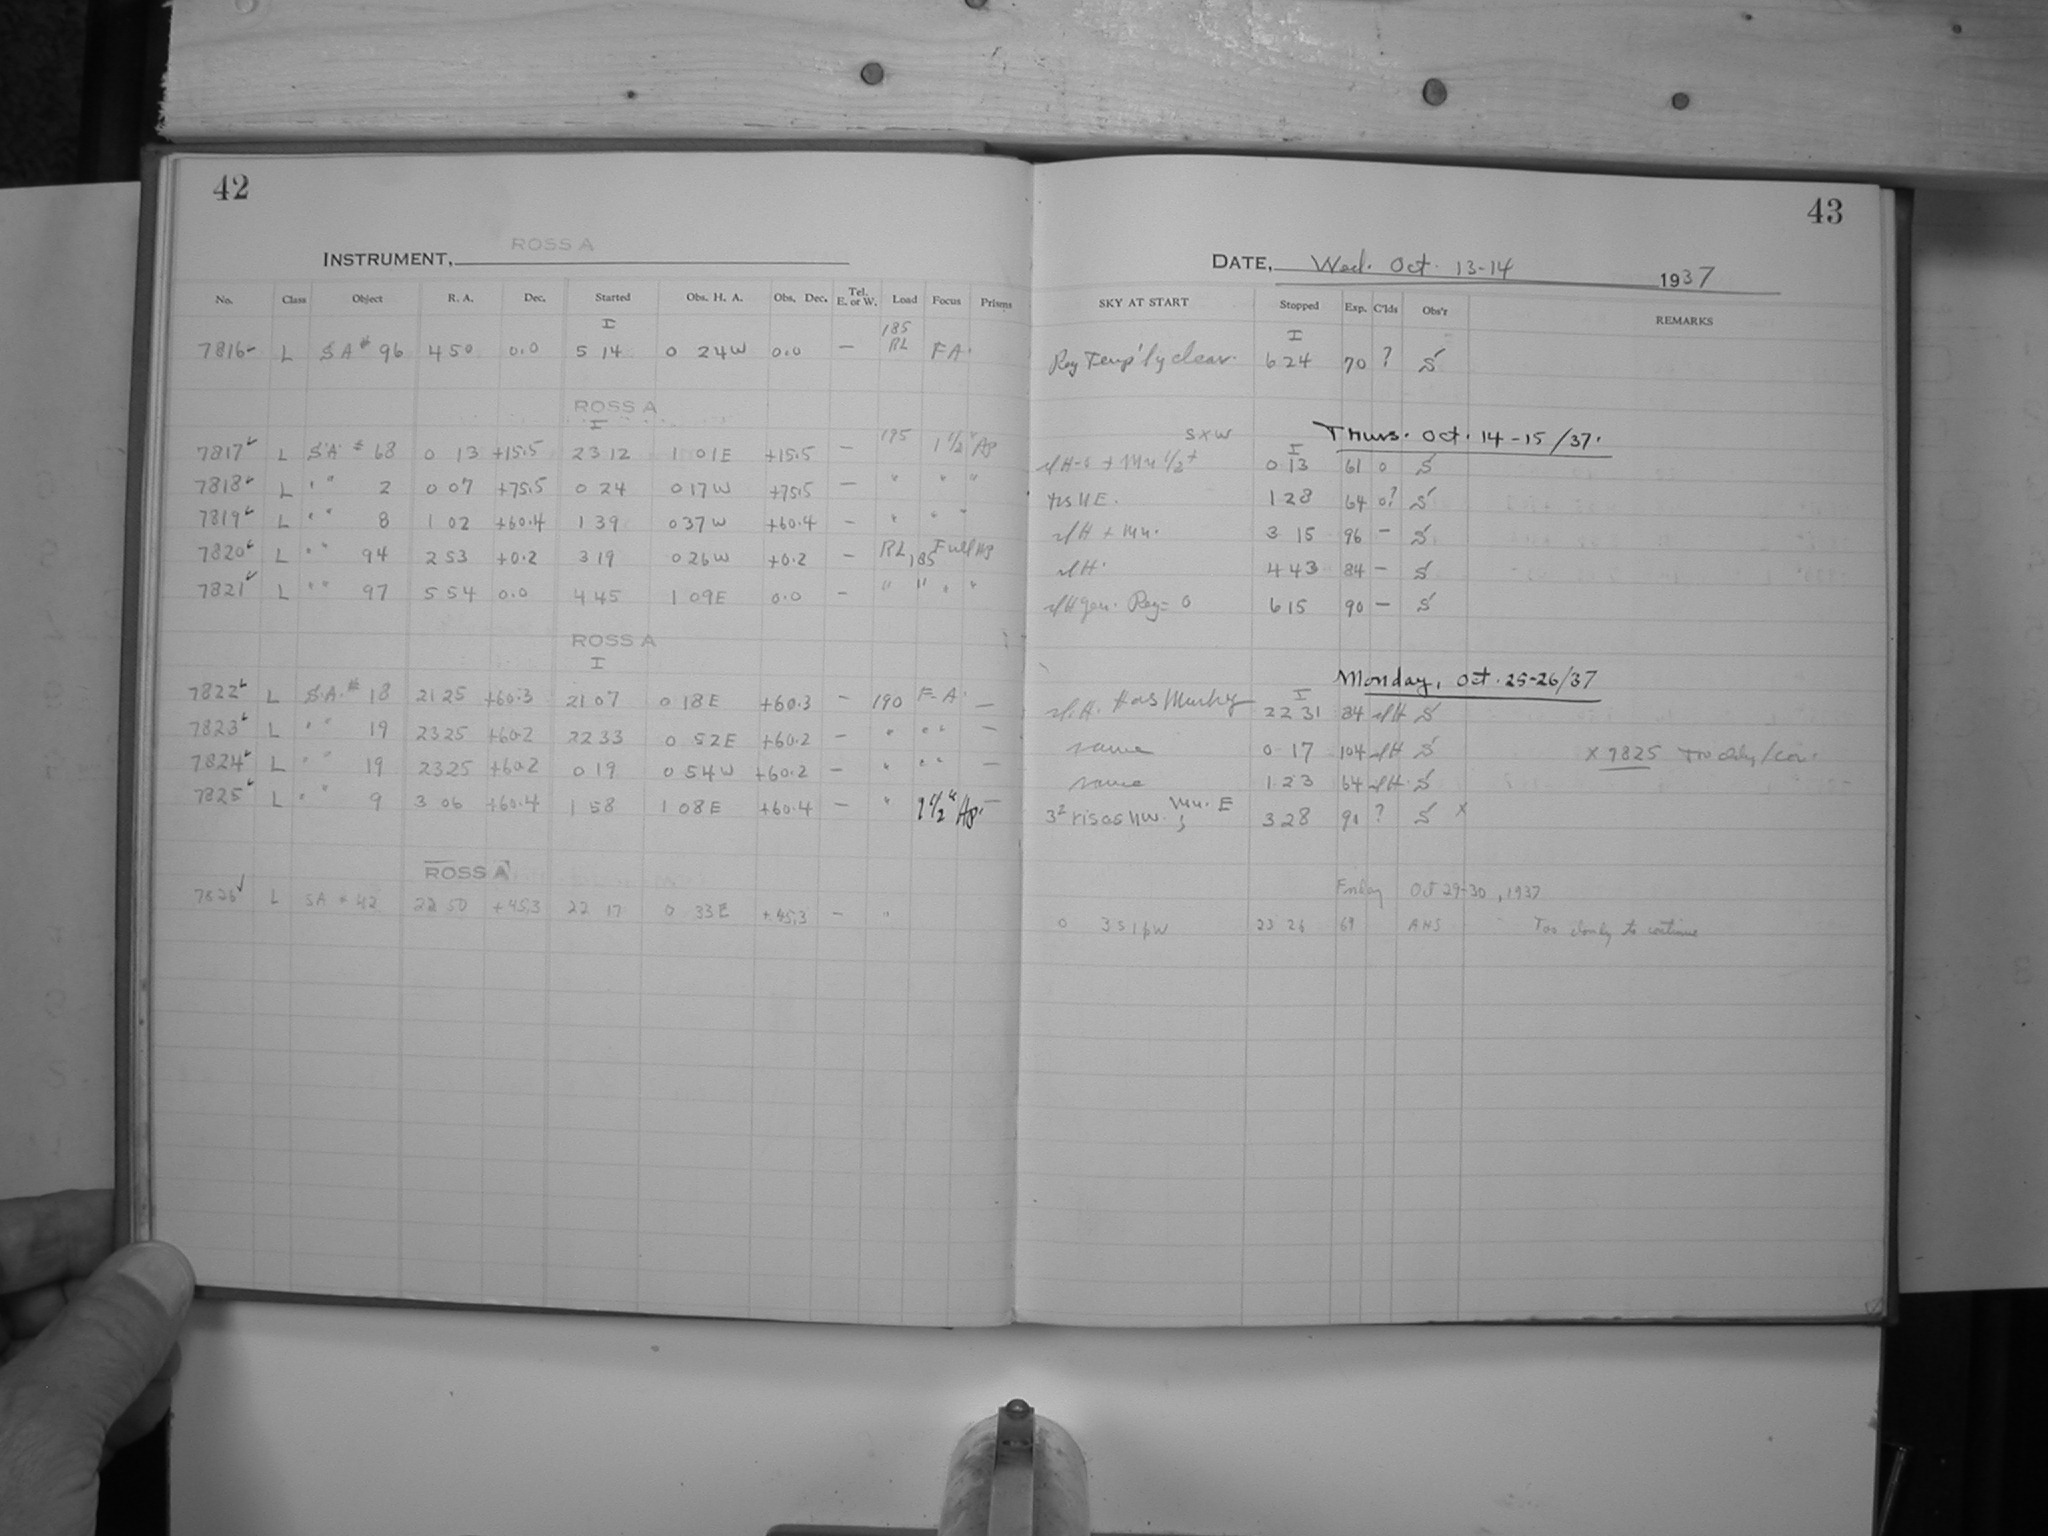 42
43
INSTRUMENT, ROSS A
DATE, Wed. Oct. 13-14 1937
No. Class Object R. A. Dec. Started Obs. H. A. Obs. Dec. Tel. E. or W. Load Focus Prisms SKY AT START Stopped Exp. C'lds Obs'r REMARKS
I 185 I
7816 L SA # 96 4 50 0.0 5 14 0 24W 0.0 — RL F A. Reg Temp'ly clear. 6 24 70 ? S
ROSS A
I S×W I Thurs. Oct. 14-15/37.
7817 L SA # 68 0 13 +15.5 23 12 1 01E +15.5 — 195 1 1/2" Ap 0 13 61 0 S
7818 L " " 2 0 07 +75.5 0 24 0 17W +75.5 — " " " NE. 1 28 64 0? S
7819 L " " 8 1 02 +60.4 1 39 0 37W +60.4 — " " " 3 15 96 — S
7820 L " " 94 2 53 +0.2 3 19 0 26W +0.2 — RL 185 Full Ap 4 43 84 — S
7821 L " " 97 5 54 0.0 4 45 1 09E 0.0 — " " " " gen. Reg = 0 6 15 90 — S
ROSS A
I Monday, Oct. 25-26/37
7822 L S.A. # 18 21 25 +60.3 21 07 0 18E +60.3 — 190 F-A. — I 22 31 84 S
7823 L " " 19 23 25 +60.2 22 33 0 52E +60.2 — " " " — same 0 17 104 S × 7825
7824 L " " 19 23 25 +60.2 0 19 0 54W +60.2 — " " " — same 1 23 64 S
7825 L " " 9 3 06 +60.4 1 58 1 08E +60.4 — " 1 1/2" Ap. — 3 28 90 ? S ×
ROSS A
Friday Oct 29-30, 1937
7826 L SA # 42 22 50 +45.3 22 17 0 33E +45.3 — " 0 23 26 69 ANS Too cloudy to continue